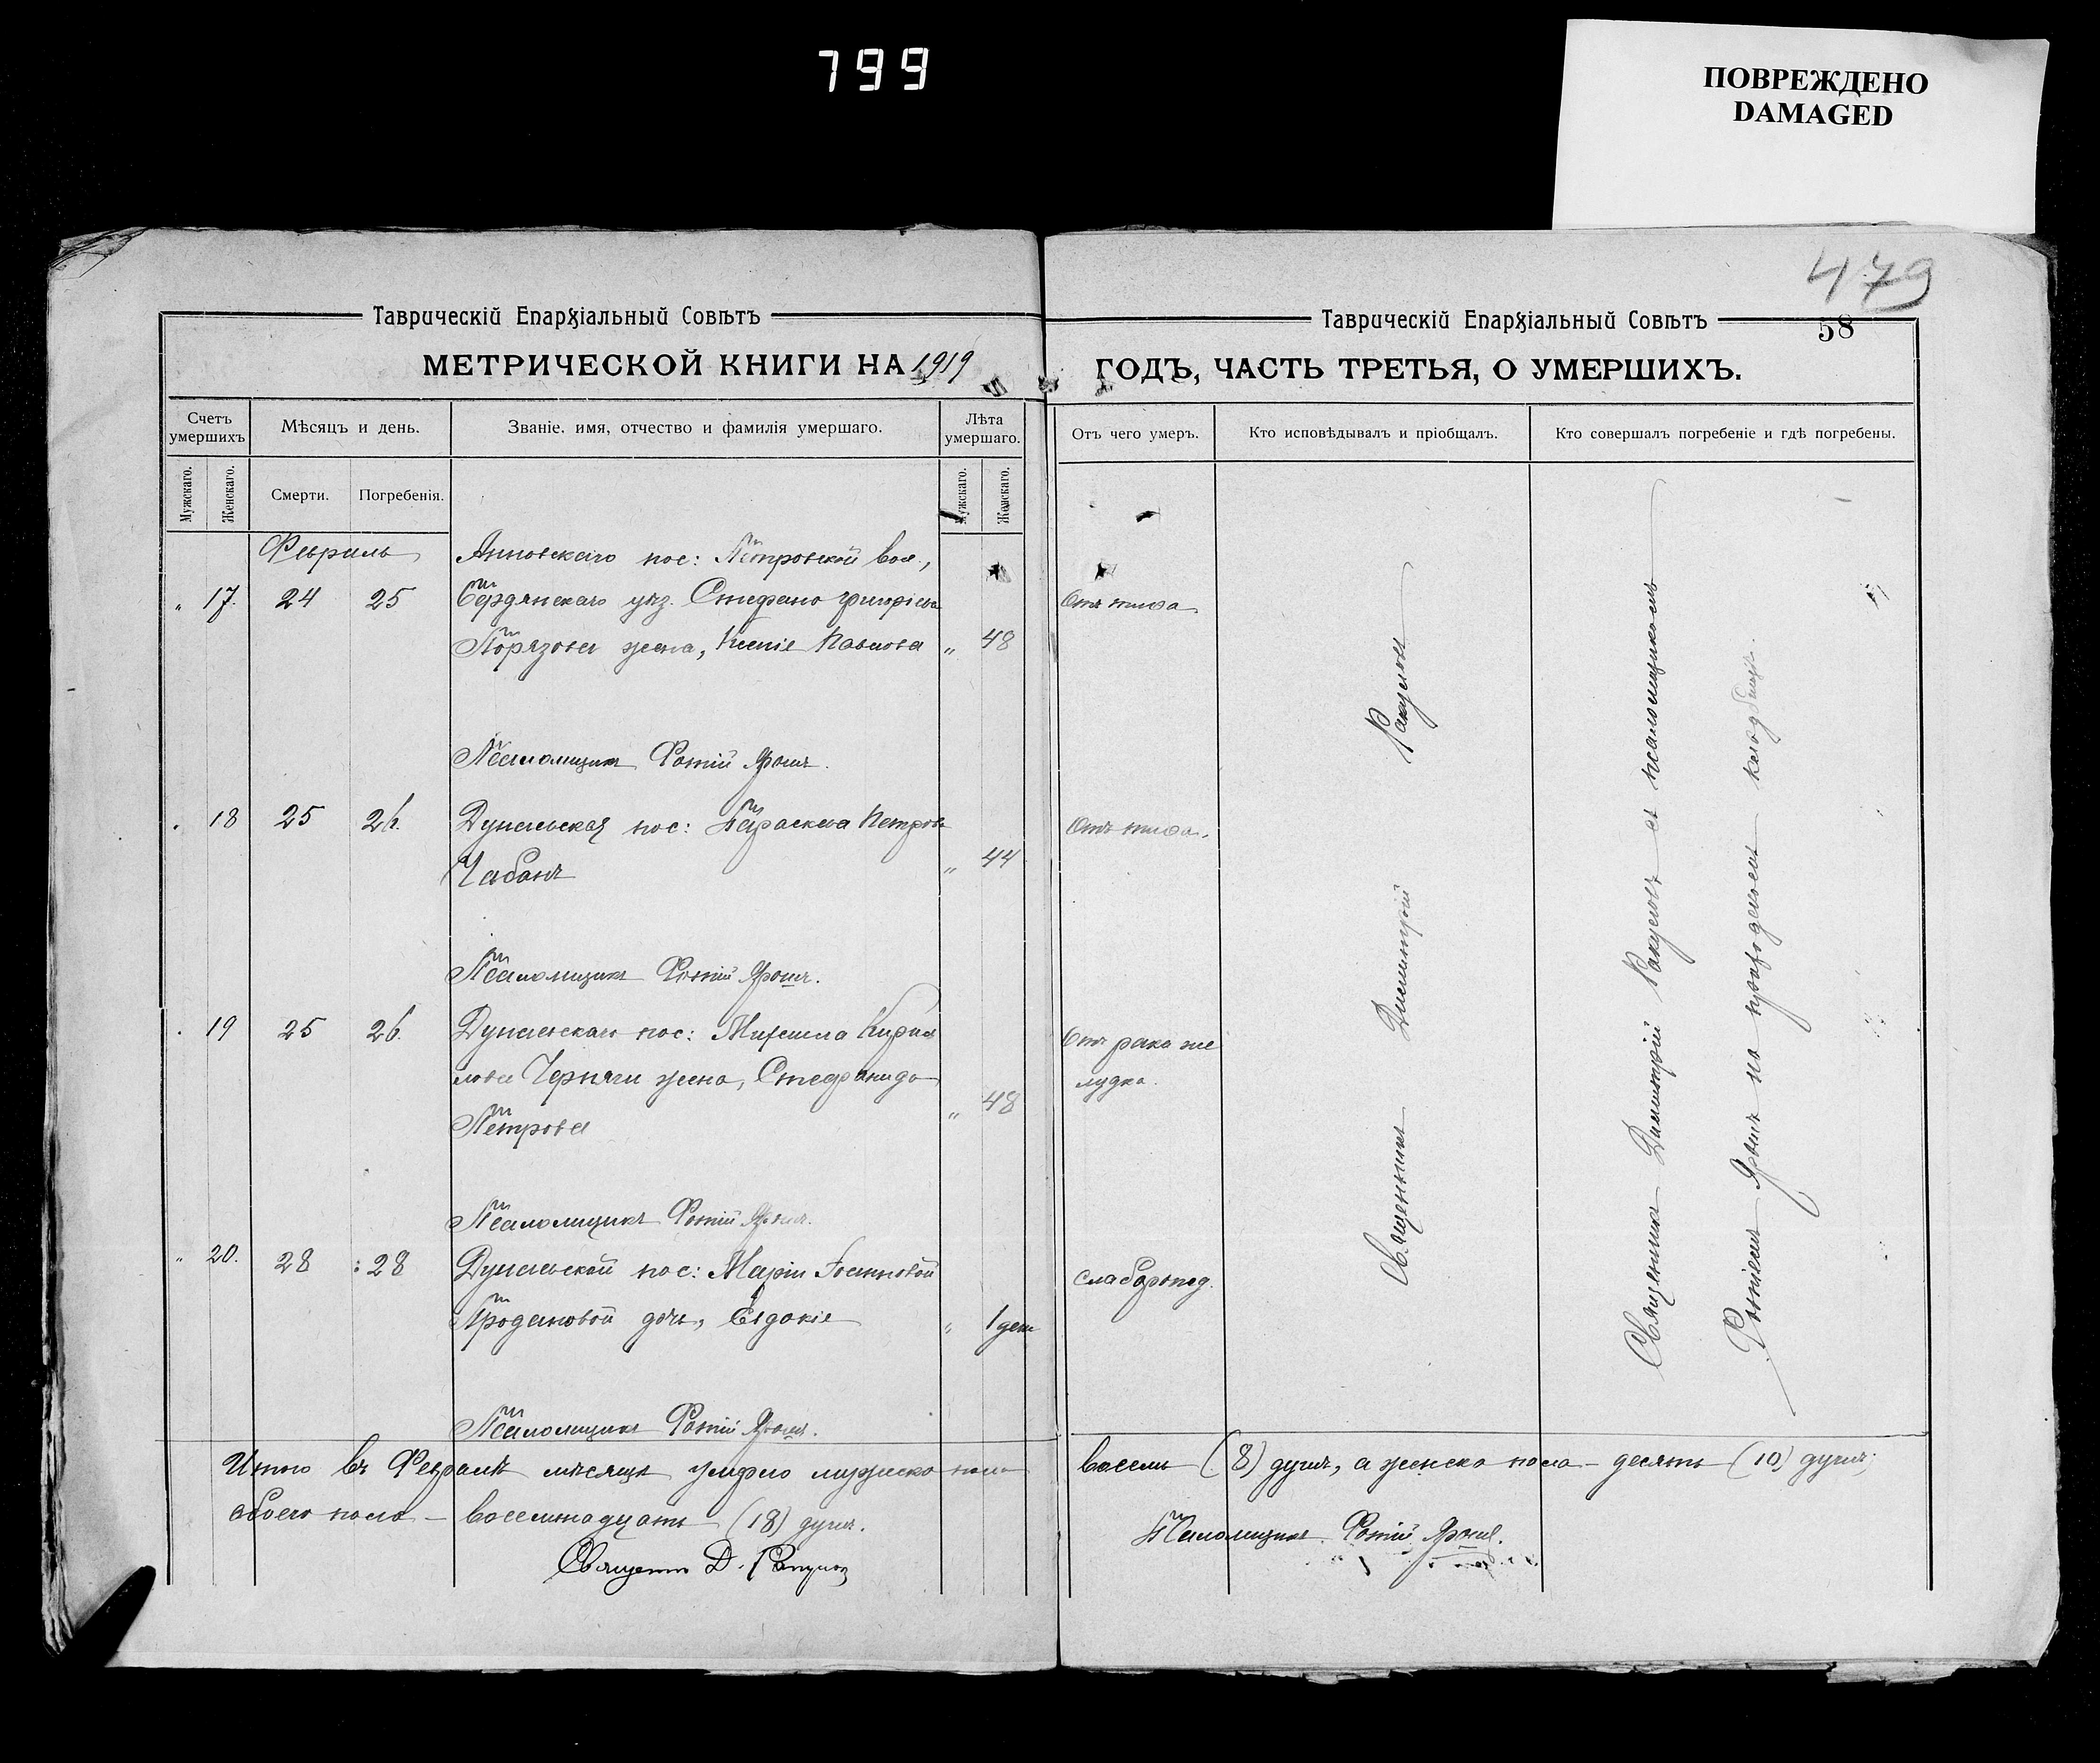 799
ПОВРЕЖДЕНО
DAMAGED
479
58
Таврическій Епархіальный Совѣтъ
МЕТРИЧЕСКОЙ КНИГИ НА 1919
Счетъ умершихъ
Мѣсяцъ и день.
Званіе, имя, отчество и фамилія умершаго.
Лѣта умершаго.
Мужскаго.
Женскаго.
Смерти.
Погребенія.
Мужскаго.
Женскаго.
Таврическій Епархіальный Совѣтъ
ГОДЪ, ЧАСТЬ ТРЕТЬЯ, О УМЕРШИХЪ.
Отъ чего умеръ.
Кто исповѣдывалъ и пріобщалъ.
Кто совершалъ погребеніе и гдѣ погребены.
Февраль
Анновскаго пос: Петровской вол.,
" 17. 24 25 Бердянскаго уѣз. Стефана Григоріева Отъ тифа
жена, Ксенія Павлова " 48
Псаломщикъ Фотій Ярошъ.
" 18 25 26. пос: Параскева Петрова Отъ тифа.
Чабанъ " 44
Псаломщикъ Фотій Ярошъ.
" 19 25 26. пос: Михаила Кирил Отъ рака же
лова Черняги жена, Стефанида лудка.
Петрова " 48
Псаломщикъ Фотій Ярошъ.
" 20. 28 28 пос: Маріи Іоанновой слаборожд.
Продановой дочь, Евдокія " 1 ден
Псаломщикъ Фотій Ярошъ.
Священникъ Димитрій Ракуловъ
Священникъ Димитрій Ракуловъ съ псаломщикомъ
Фотіемъ Ярошъ на приходскомъ кладбищѣ.
Итого въ Февралѣ мѣсяцѣ умерло мужеска пола восемь (8) душъ, а женска пола – десять (10) душъ;
обоего пола – восемнадцать (18) душъ.
Псаломщикъ Фотій Ярошъ.
Священникъ Д. Ракуловъ